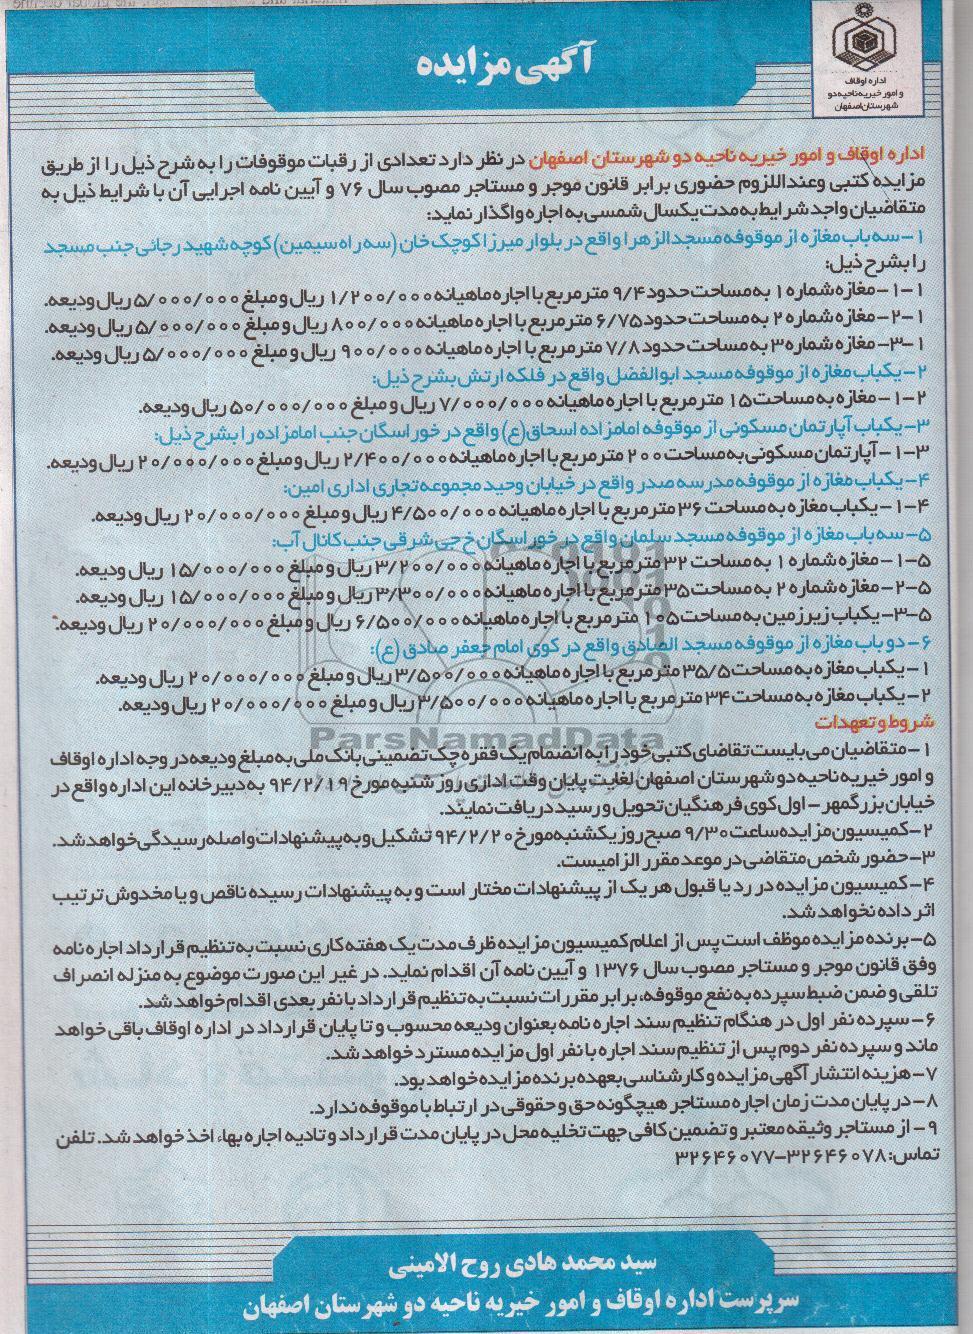 اداره اوقاف
و امور خیریه ناحیه دو
شهرستان اصفهان
آگهی مزایده
اداره اوقاف و امور خیریه ناحیه دو شهرستان اصفهان در نظر دارد تعدادی از رقبات موقوفات را به شرح ذیل را از طریق
مزایده کتبی وعنداللزوم حضوری برابر قانون موجر و مستاجر مصوب سال ۷۶ و آیین نامه اجرایی آن با شرایط ذیل به
متقاضیان واجد شرایط به مدت یکسال شمسی به اجاره واگذار نماید:
۱-سه باب مغازه از موقوفه مسجدالزهرا واقع در بلوار میرزا کوچک خان (سه راه سیمین) کوچه شهید رجائی جنب مسجد
را بشرح ذیل:
۱-۱-مغازه شماره ۱ به مساحت حدود ۹/۴ مترمربع با اجاره ماهیانه ۱/۲۰۰/۰۰۰ ریال و مبلغ ۵/۰۰۰/۰۰۰ ریال ودیعه.
۱-۲-مغازه شماره ۲ به مساحت حدود ۶/۷۵ مترمربع با اجاره ماهیانه ۸۰۰/۰۰۰ ریال و مبلغ ۵/۰۰۰/۰۰۰ ریال ودیعه.
۱-۳-مغازه شماره ۳ به مساحت حدود ۷/۸ مترمربع با اجاره ماهیانه ۹۰۰/۰۰۰ ریال و مبلغ ۵/۰۰۰/۰۰۰ ریال ودیعه.
۲-یکباب مغازه از موقوفه مسجد ابوالفضل واقع در فلکه ارتش بشرح ذیل:
۲-۱-مغازه به مساحت ۱۵ مترمربع با اجاره ماهیانه ۷/۰۰۰/۰۰۰ ریال و مبلغ ۵۰/۰۰۰/۰۰۰ ریال ودیعه.
۳-یکباب آپارتمان مسکونی از موقوفه امامزاده اسحاق(ع) واقع در خوراسگان جنب امامزاده را بشرح ذیل:
۳-۱-آپارتمان مسکونی به مساحت ۲۰۰ مترمربع با اجاره ماهیانه ۲/۴۰۰/۰۰۰ ریال و مبلغ ۲۰/۰۰۰/۰۰۰ ریال ودیعه.
۴-یکباب مغازه از موقوفه مدرسه صدر واقع در خیابان وحید مجموعه تجاری اداری امین:
۴-۱-یکباب مغازه به مساحت ۳۶ مترمربع با اجاره ماهیانه ۴/۵۰۰/۰۰۰ ریال و مبلغ ۲۰/۰۰۰/۰۰۰ ریال ودیعه.
۵-سه باب مغازه از موقوفه مسجد سلمان واقع در خوراسگان خ جی شرقی جنب کانال آب:
۵-۱-مغازه شماره ۱ به مساحت ۳۲ مترمربع با اجاره ماهیانه ۳/۲۰۰/۰۰۰ ریال و مبلغ ۱۵/۰۰۰/۰۰۰ ریال ودیعه.
۵-۲-مغازه شماره ۲ به مساحت ۳۵ مترمربع با اجاره ماهیانه ۳/۳۰۰/۰۰۰ ریال و مبلغ ۱۵/۰۰۰/۰۰۰ ریال ودیعه.
۵-۳-یکباب زیرزمین به مساحت ۱۰۵ مترمربع با اجاره ماهیانه ۶/۵۰۰/۰۰۰ ریال و مبلغ ۲۰/۰۰۰/۰۰۰ ریال ودیعه.
۶-دو باب مغازه از موقوفه مسجد الصادق واقع در کوی امام جعفر صادق (ع):
۱-یکباب مغازه به مساحت ۳۵/۵ مترمربع با اجاره ماهیانه ۳/۵۰۰/۰۰۰ ریال و مبلغ ۲۰/۰۰۰/۰۰۰ ریال ودیعه.
۲-یکباب مغازه به مساحت ۳۴ مترمربع با اجاره ماهیانه ۳/۵۰۰/۰۰۰ ریال و مبلغ ۲۰/۰۰۰/۰۰۰ ریال ودیعه.
شروط و تعهدات
ParsNamadData
۱-متقاضیان می بایست تقاضای کتبی خود را به انضمام یک فقره چک تضمینی بانک ملی به مبلغ ودیعه در وجه اداره اوقاف
و امور خیریه ناحیه دو شهرستان اصفهان لغایت پایان وقت اداری روز شنبه مورخ ۹۴/۲/۱۹ به دبیرخانه این اداره واقع در
خیابان بزرگمهر - اول کوی فرهنگیان تحویل و رسید دریافت نمایند.
۲-کمیسیون مزایده ساعت ۹/۳۰ صبح روز یکشنبه مورخ ۹۴/۲/۲۰ تشکیل و به پیشنهادات واصله رسیدگی خواهد شد.
۳-حضور شخص متقاضی در موعد مقرر الزامیست.
۴-کمیسیون مزایده در رد یا قبول هر یک از پیشنهادات مختار است و به پیشنهادات رسیده ناقص و یا مخدوش ترتیب
اثر داده نخواهد شد.
۵-برنده مزایده موظف است پس از اعلام کمیسیون مزایده ظرف مدت یک هفته کاری نسبت به تنظیم قرارداد اجاره نامه
وفق قانون موجر و مستاجر مصوب سال ۱۳۷۶ و آیین نامه آن اقدام نماید. در غیر این صورت موضوع به منزله انصراف
تلقی و ضمن ضبط سپرده به نفع موقوفه، برابر مقررات نسبت به تنظیم قرارداد با نفر بعدی اقدام خواهد شد.
۶-سپرده نفر اول در هنگام تنظیم سند اجاره نامه بعنوان ودیعه محسوب و تا پایان قرارداد در اداره اوقاف باقی خواهد
ماند و سپرده نفر دوم پس از تنظیم سند اجاره با نفر اول مزایده مسترد خواهد شد.
۷-هزینه انتشار آگهی مزایده و کارشناسی بعهده برنده مزایده خواهد بود.
۸-در پایان مدت زمان اجاره مستاجر هیچگونه حق و حقوقی در ارتباط با موقوفه ندارد.
۹-از مستاجر وثیقه معتبر و تضمین کافی جهت تخلیه محل در پایان مدت قرارداد و تادیه اجاره بهاء اخذ خواهد شد. تلفن
تماس: ۳۲۶۴۶۰۷۸-۳۲۶۴۶۰۷۷
سید محمد هادی روح الامینی
سرپرست اداره اوقاف و امور خیریه ناحیه دو شهرستان اصفهان